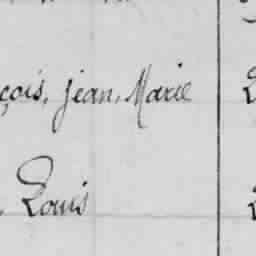 çois, Jean, Marie
, Louis